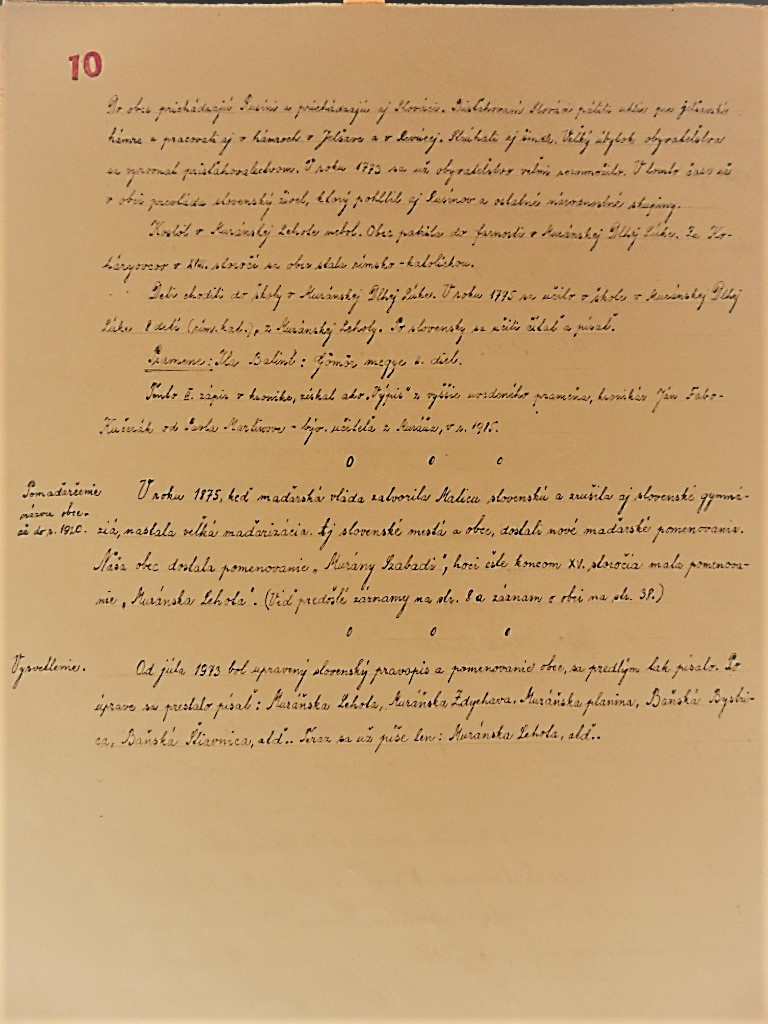 10
Do obce prichádzajú Rusíni a prichádzajú aj Slováci. Prisťahovaní Slováci pálili uhlie pre
hámre a pracovali aj v hámroch v Jelšave a v Revúcej. Strúhali aj šindz. Veľký úbytok obyvateľstva
sa vyrovnal prisťahovalectvom. V roku 1773 sa už obyvateľstvo veľmi rozmnožilo. V tomto čase už
v obci prevláda slovenský živel, ktorý pohltil aj Rusínov a ostatné národnostné skupiny.
Kostol v Muránskej Lehote nebol. Obec patrila do farnosti v Muránskej Dlhej Lúke. Za Ko-
háryovcov v XVIII. storočí sa obec stala rímsko-katolíckou.
Deti chodili do školy v Muránskej Dlhej Lúke. V roku 1775 sa učilo v škole v Muránskej Dlhej
Lúke 8 detí (rím.kat.), z Muránskej Lehoty. Po slovensky sa učili čítať a písať.
Pramene: Ila Balint: Gömör megye 2. diel.
Tento II. zápis v kronike, získal ako "Výpis" z vyššie uvedeného prameňa, kronikár Ján Fabo-
Kučerák od Pavla Martinova - býv. učiteľa z Muráňa, v r. 1985.
o o o
Pomaďarčenie
názvu obce-
až do r. 1920.
V roku 1875, keď maďarská vláda zatvorila Maticu slovenskú a zrušila aj slovenské gymná-
ziá, nastala veľká maďarizácia. Aj slovenské mestá a obce, dostali nové maďarské pomenovania.
Naša obec dostala pomenovanie „Murány Szabadi", hoci ešte koncom XV. storočia mala pomenova-
nie „Muránska Lehota". (Viď predošlé záznamy na str. 8 a záznam o obci na str. 38.)
o o o
Vysvetlenie.
Od júla 1973 bol upravený slovenský pravopis a pomenovanie obce, sa predtým tak písalo. Po
úprave sa prestalo písať: Muráňska Lehota, Muráňska Zdychava, Muráňska planina, Baňská Bystri-
ca, Baňská Štiavnica, atď.. Teraz sa už píše len: Muránska Lehota, atď..